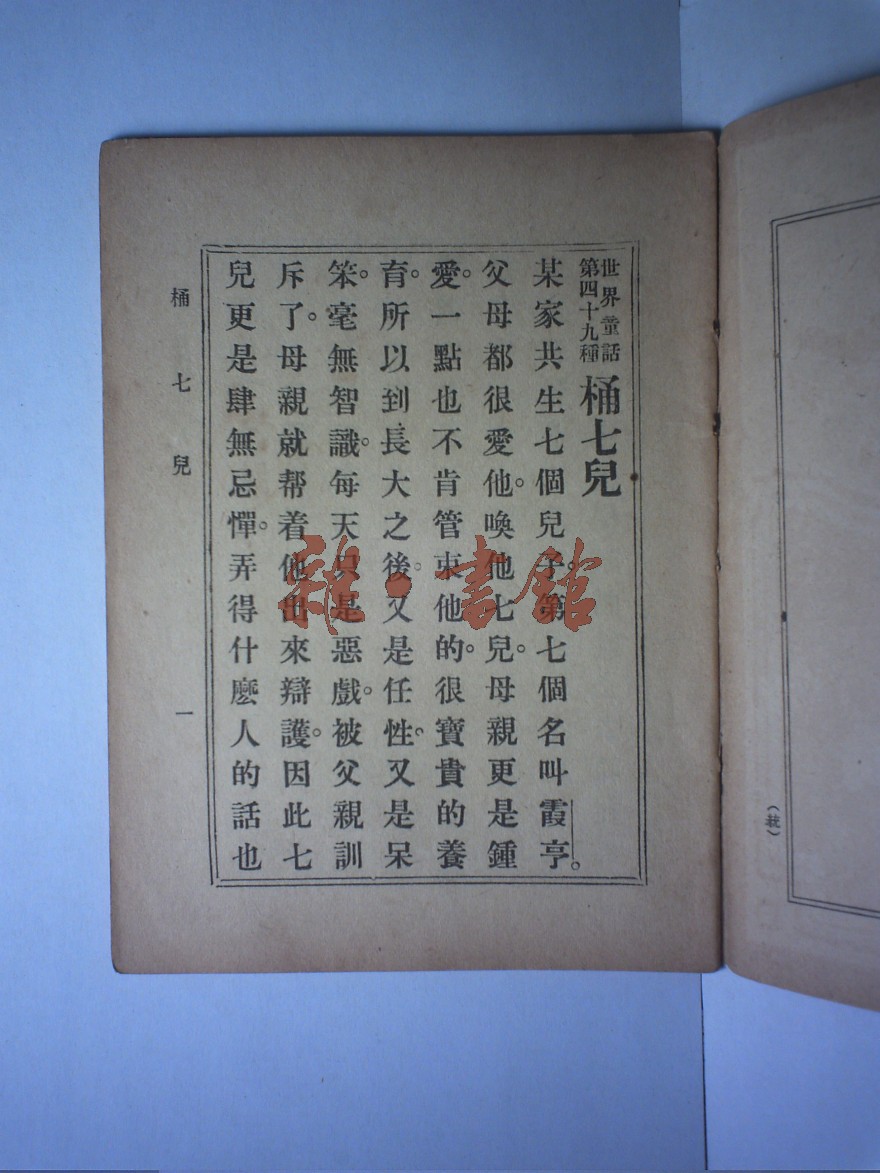 世界童話
第四十九種
桶七兒
某家共生七個兒子。第七個名叫霞亨。
父母都很愛他。喚他七兒。母親更是鍾
愛。一點也不肯管束他的。很寶貴的養
育。所以到長大之後。又是任性。又是呆
笨。毫無智識。每天只是惡戲。被父親訓
斥了。母親就帮着他出來辯護。因此七
兒更是肆無忌憚。弄得什麽人的話也
桶七兒
一
雜·書館